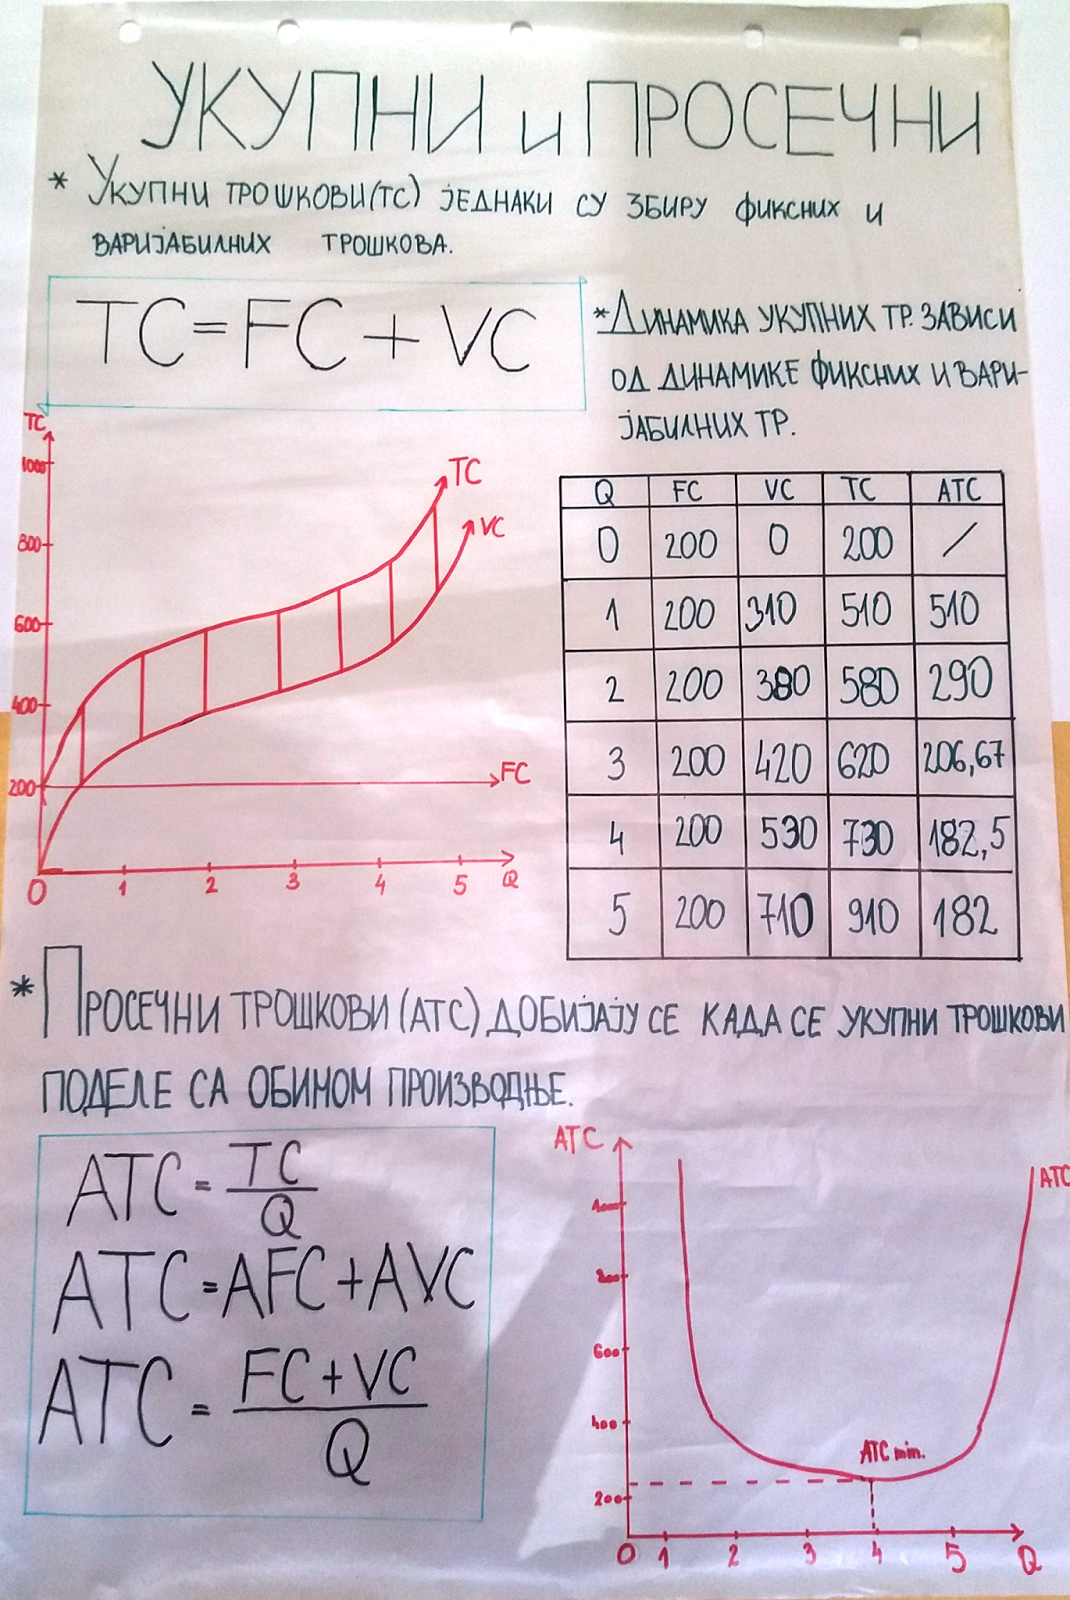 УКУПНИ и ПРОСЕЧНИ
* УКУПНИ ТРОШКОВИ (ТС) ЈЕДНАКИ СУ ЗБИРУ ФИКСНИХ И
ВАРИЈАБИЛНИХ ТРОШКОВА.
TC=FC+VC
*ДИНАМИКА УКУПНИХ ТР. ЗАВИСИ
ОД ДИНАМИКЕ ФИКСНИХ И ВАРИ-
ЈАБИЛНИХ ТР.
TC
1000
800
600
400
200
0 1 2 3 4 5 Q
TC
VC
FC
Q FC VC TC ATC
0 200 0 200 /
1 200 310 510 510
2 200 380 580 290
3 200 420 620 206,67
4 200 530 730 182,5
5 200 710 910 182
* ПРОСЕЧНИ ТРОШКОВИ (АТС) ДОБИЈАЈУ СЕ КАДА СЕ УКУПНИ ТРОШКОВИ
ПОДЕЛЕ СА ОБИМОМ ПРОИЗВОДЊЕ.
ATC = TC / Q
ATC = AFC + AVC
ATC = FC + VC / Q
ATC
1000
800
600
400
200
0 1 2 3 4 5 Q
ATC min.
ATC